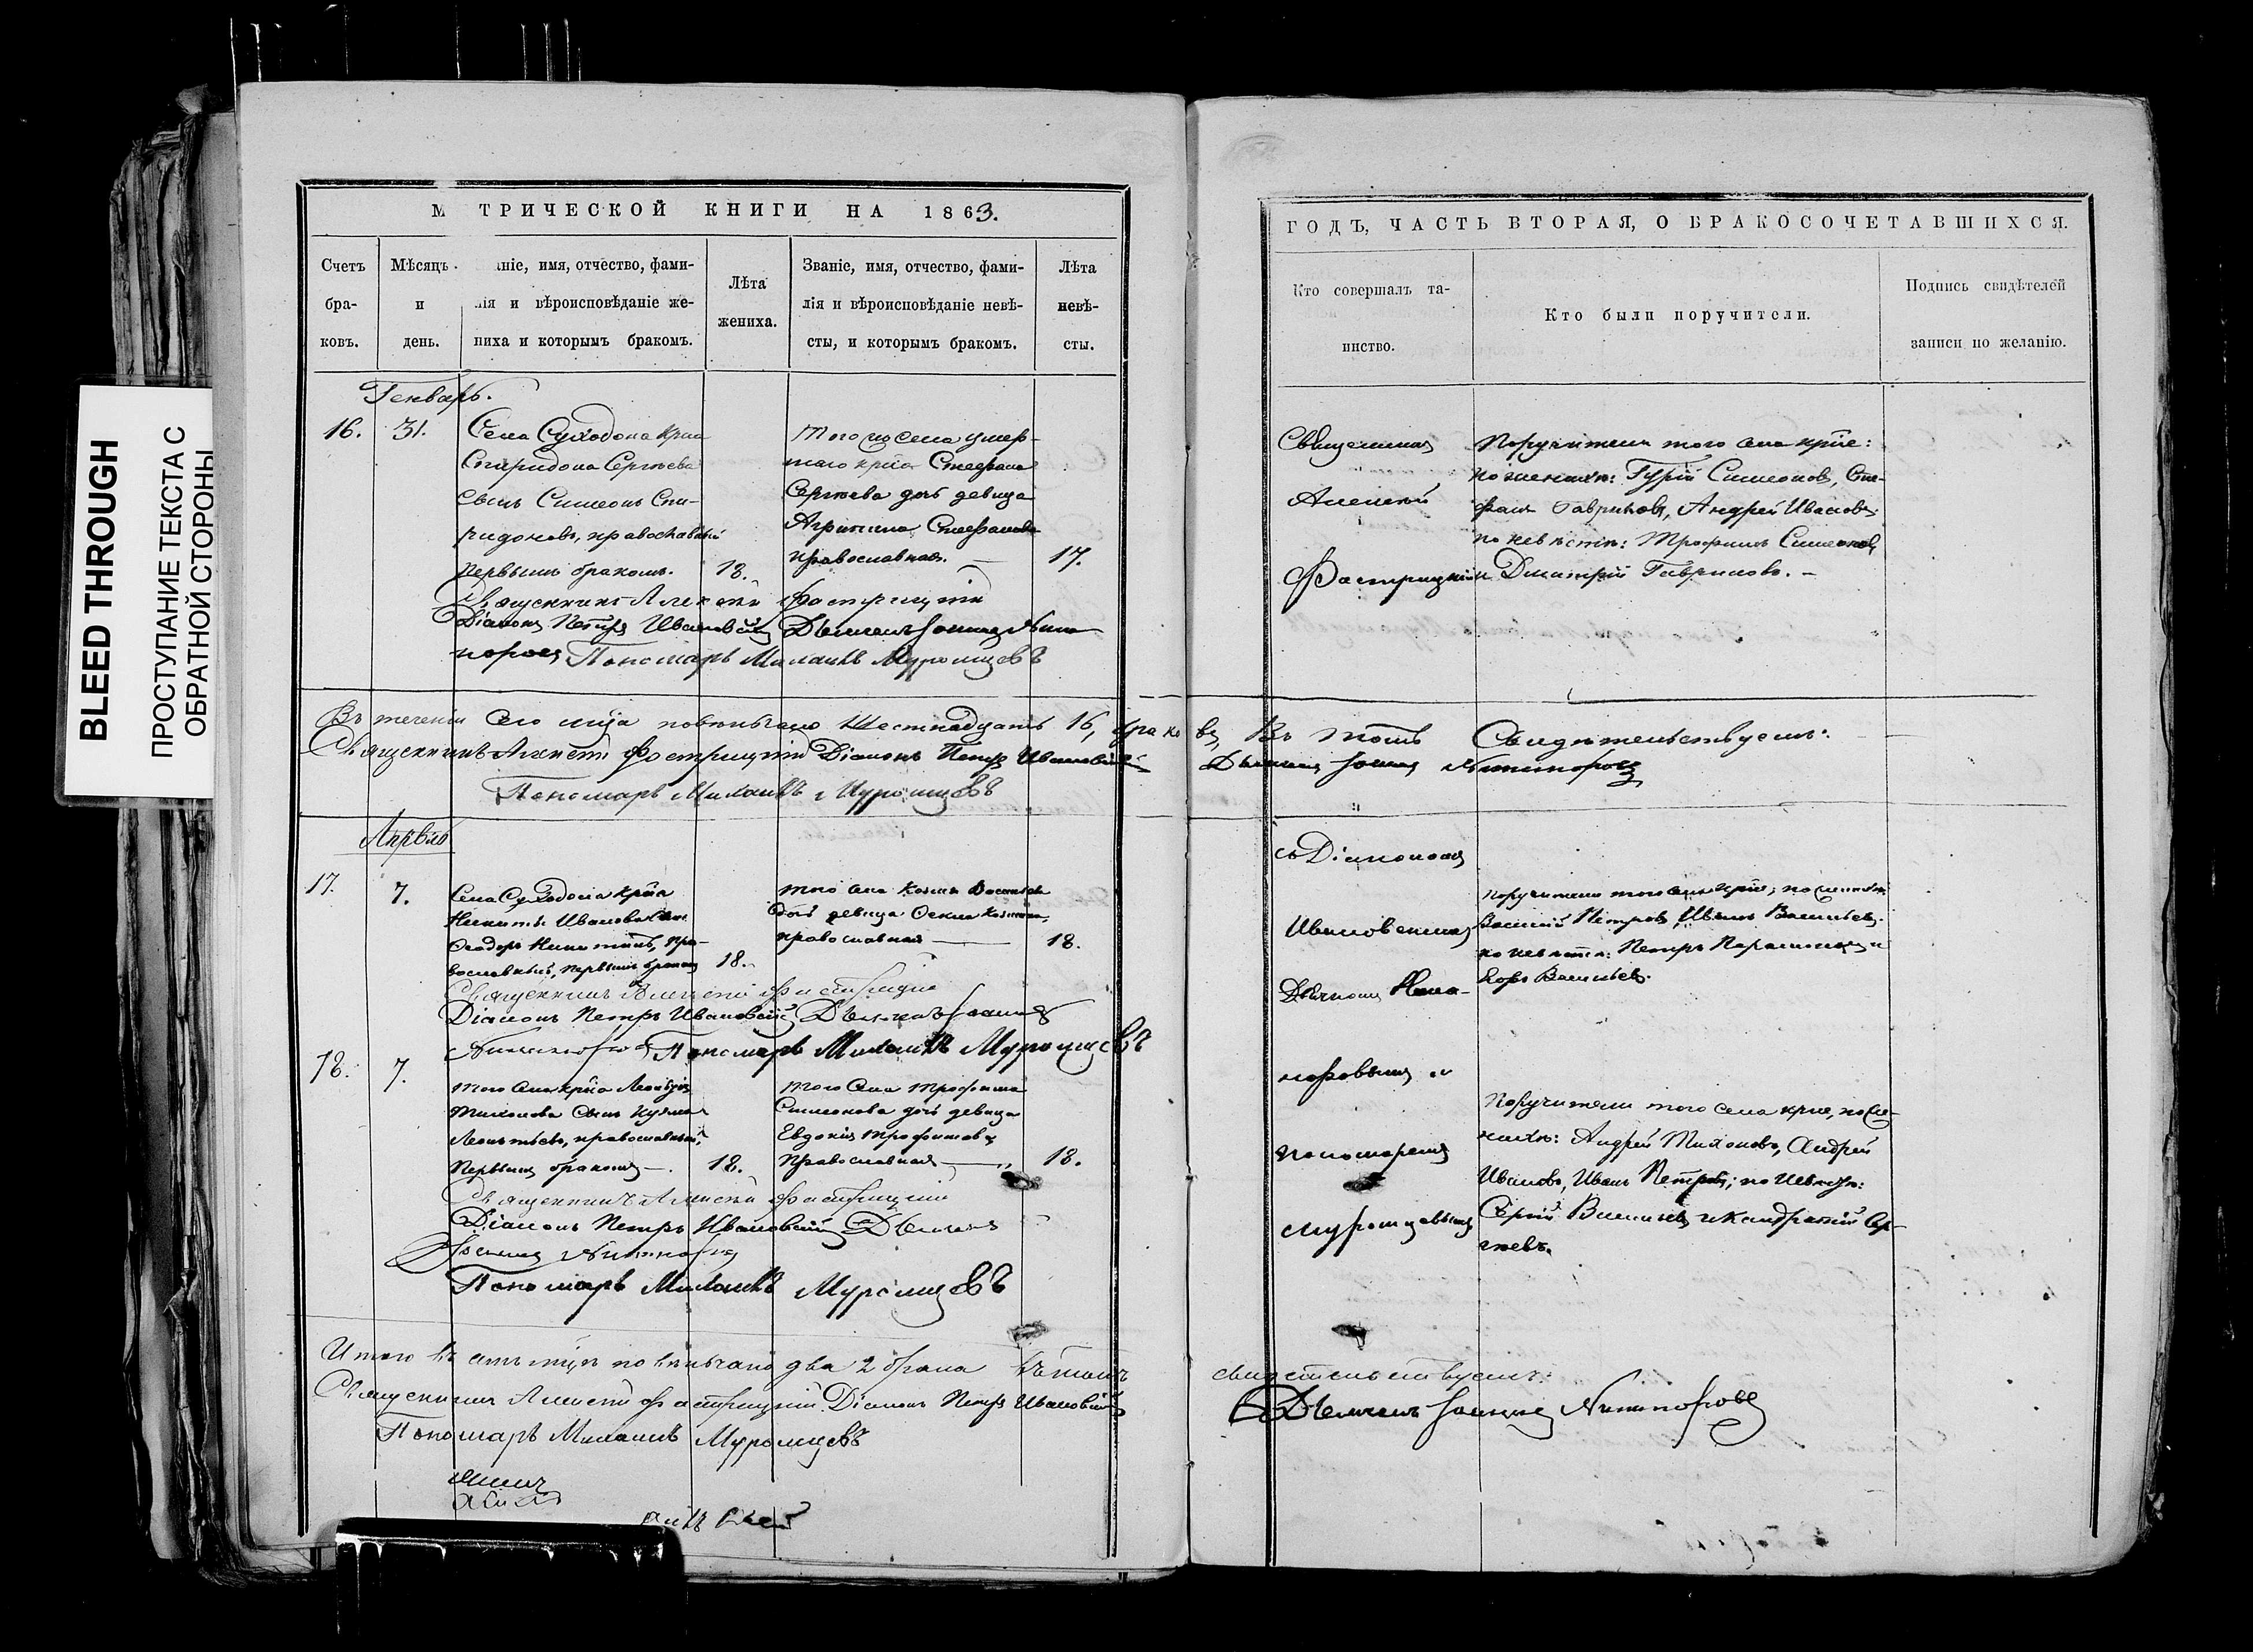 BLEED THROUGH
ПРОСТУПАНИЕ ТЕКСТА С
ОБРАТНОЙ СТОРОНЫ
М ТРИЧЕСКОЙ КНИГИ НА 1863.
Счетъ бра- ковъ.
Мѣсяцъ и день.
ніе, имя, отчество, фами-
лія и вѣроисповѣданіе же-
ниха и которымъ бракомъ.
Лѣта жениха.
Званіе, имя, отчество, фами-
лія и вѣроисповѣданіе невѣ-
сты, и которымъ бракомъ.
Лѣта невѣ- сты.
Генварь.
16. 31.
Села Суходола кр
Спиридона Сергѣева
сынъ Симеонъ Спи-
ридоновъ, православный
первымъ бракомъ. 18.
того же села умер-
шаго кр Стефана
Сергѣева дочь девица
Агрипина Стефанова
православная. 17.
Священникъ Алексѣй
Діаконъ Петръ Ивановскій Дьячекъ Іоаннъ Ники-
форовъ Пономарь Михаилъ Муромцевъ
Въ теченіи сего мца повѣнчано шестнадцать 16, браковъ,
Священникъ Алексѣй Діаконъ Петръ Ивановскій
Пономарь Михаилъ Муромцевъ
Апрѣль
17. 7.
Села Суходола кр
Никиты Иванова сынъ
Ѳеодоръ Никитинъ, пра-
вославный, первымъ бракомъ 18.
того села
дочь девица
православная 18.
Священникъ Алексѣй
Діаконъ Петръ Ивановскій Дьячекъ Іоаннъ
Никифоровъ Пономарь Михаилъ Муромцевъ
18. 7.
того села кр
Тихонова сынъ Кузма
Леонтьевъ, православный,
первымъ бракомъ 18.
того села Трофима
Симеонова дочь девица
Евдокія Трофимова
православная 18.
Священникъ Алексѣй
Діаконъ Петръ Ивановскій Дьячекъ
Іоаннъ Никифоровъ
Пономарь Михаилъ Муромцевъ
Итого въ семъ мцѣ повѣнчано два 2 брака въ томъ
Священникъ Алексѣй Діаконъ Петръ Ивановскій
Пономарь Михаилъ Муромцевъ
ГОДЪ, ЧАСТЬ ВТОРАЯ, О БРАКОСОЧЕТАВШИХСЯ.
Кто совершалъ та-
инство.
Кто были поручители.
Подпись свидѣтелей
записи по желанію.
Священникъ
Алексѣй
Поручители того села
по женихѣ: Гурій Симеоновъ, Сте-
фанъ Гавриловъ, Андрей Ивановъ;
по невѣстѣ: Трофимъ Симеоновъ,
Дмитрій Гавриловъ.
Въ томъ Свидѣтельствуемъ:
Дьячекъ Іоаннъ Никифоровъ
съ Діакономъ
Ивановскимъ
Дьячкомъ Ники-
форовымъ и
пономаремъ
Муромцевымъ
Поручители того села; по женихѣ
Василій Петровъ, Иванъ Васильевъ.
по невѣстѣ: Петръ
Егоръ Васильевъ.
Поручители того села по же-
нихѣ: Андрей Тихоновъ, Андрей
Ивановъ, Иванъ Петровъ; по невѣстѣ:
Сергій Васильевъ и Кандратій Сер-
гѣевъ.
свидѣтельствуемъ:
Дьячекъ Іоаннъ Никифоровъ